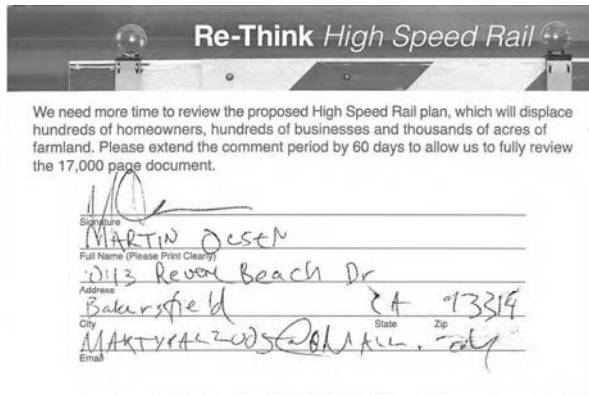 Re-Think High Speed Rail
We need more time to review the proposed High Speed Rail plan, which will displace
hundreds of homeowners, hundreds of businesses and thousands of acres of
farmland. Please extend the comment period by 60 days to allow us to fully review
the 17,000 page document.
Signature
MARTIN OLSEN
Full Name (Please Print Clearly)
Beach Dr
Address
Bakersfield CA
City State Zip
Email